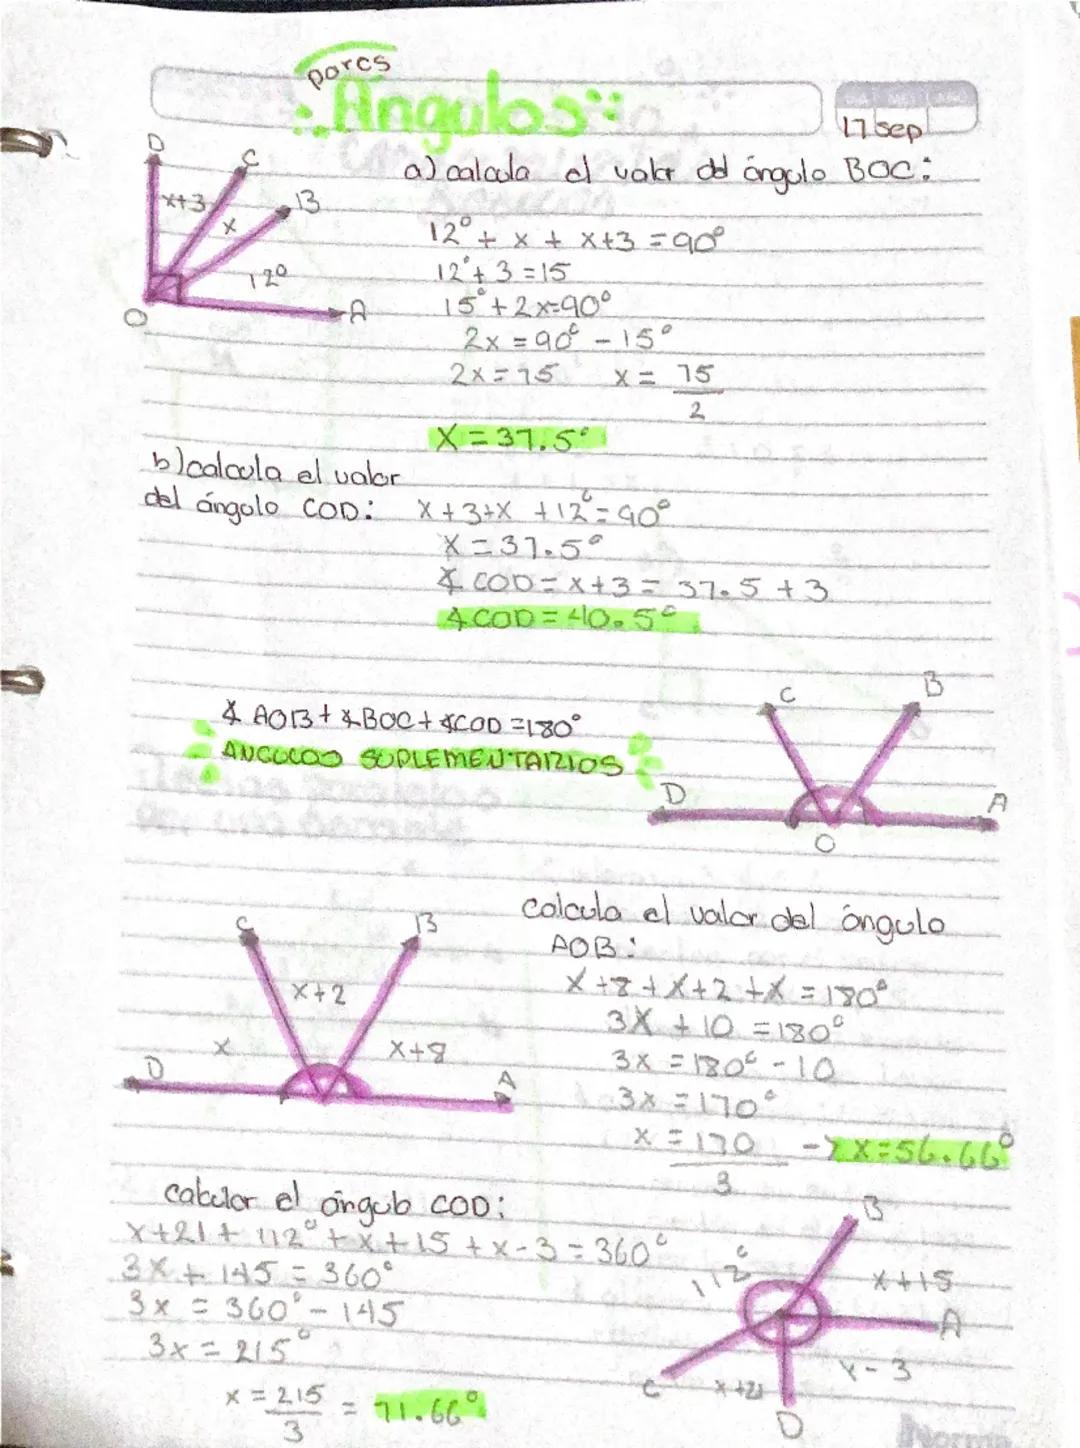 pares
Angulos
17 sep
a) calcula el valor del ángulo BOC:
D
C
B
x+3
x
12°
A
O
12° + x + x+3 = 90°
12°+ 3 = 15
15°+ 2x=90°
2x = 90° - 15°
2x = 75 x = 75
2
x = 37.5°
b) calcula el valor
del ángulo COD: x+3+x +12°=90°
x = 37.5°
∡ COD = x+3 = 37.5 + 3
∡ COD = 40.5°
∡ AOB + ∡BOC + ∡COD =180°
ANGULOS SUPLEMENTARIOS
C
B
D
A
O
calcula el valor del ángulo
AOB:
C
B
x+2
x
x+8
D
A
x+8+x+2+x = 180°
3x + 10 = 180°
3x = 180° - 10
3x = 170°
x = 170 → x=56.66°
3
calcular el ángulo COD:
x+21+ 112° + x+15 + x-3 = 360°
3x + 145 = 360°
3x = 360° - 145
3x = 215°
x = 215 = 71.66°
3
B
112°
x+15
A
x-3
C
x+21
D
Norma